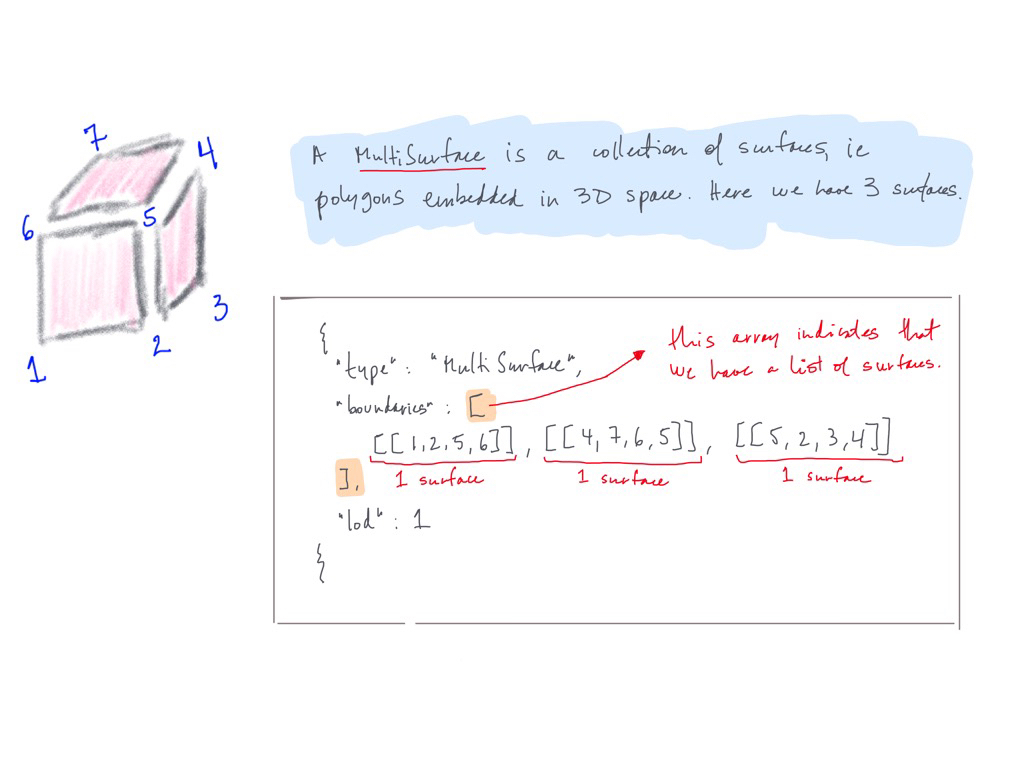 7
4
6
5
3
2
1
A MultiSurface is a collection of surfaces, ie
polygons embedded in 3D space. Here we have 3 surfaces.
{
"type": "MultiSurface",
"boundaries": [
this array indicates that
we have a list of surfaces.
[[1,2,5,6]], [[4,7,6,5]], [[5,2,3,4]]
], 1 surface 1 surface 1 surface
"lod": 1
{